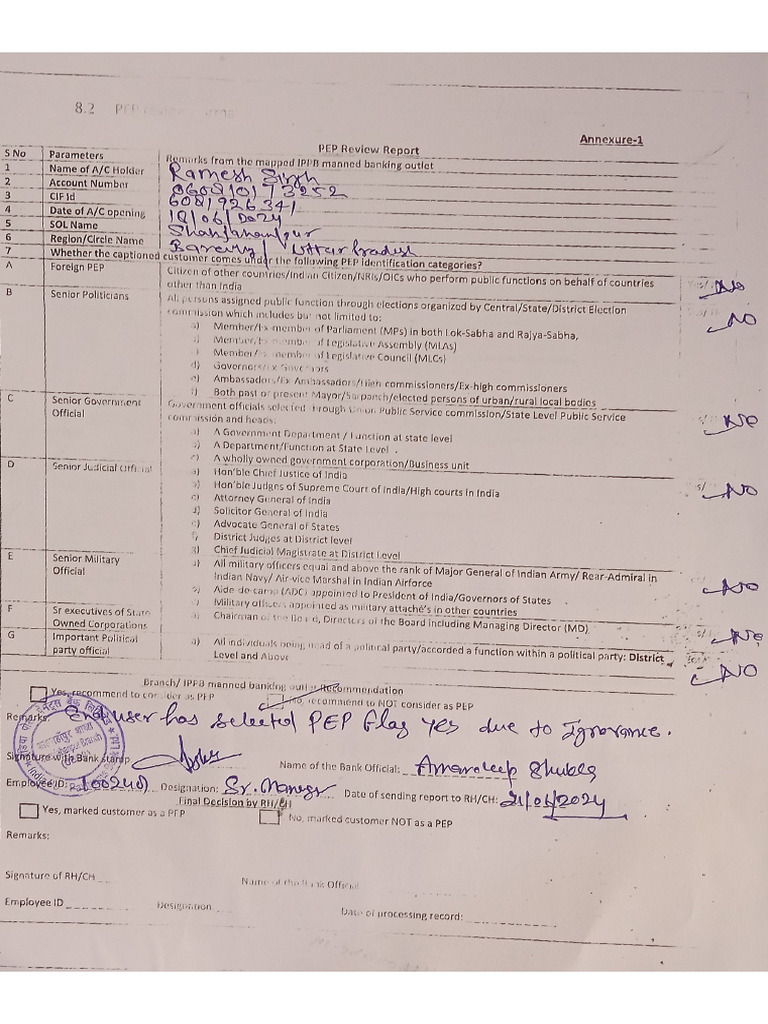 8.2 PEP
Annexure-1
PEP Review Report
S No Parameters Remarks from the mapped IPPB manned banking outlet
1 Name of A/C Holder Ramesh Singh
2 Account Number 060810173252
3 CIF Id 6081926341
4 Date of A/C opening 18/06/2024
5 SOL Name Shahjahanpur
6 Region/Circle Name Bareilly / Uttar Pradesh
7 Whether the captioned customer comes under the following PEP identification categories?
A Foreign PEP Citizen of other countries/Indian Citizen/NRIs/OICs who perform public functions on behalf of countries No
other than India
B Senior Politicians All persons assigned public function through elections organized by Central/State/District Election NO
commission which includes but not limited to:
a) Member/Ex-member of Parliament (MPs) in both Lok-Sabha and Rajya-Sabha,
Member/Ex-member of Legislative Assembly (MLAs)
Member/Ex-member of Legislative Council (MLCs)
d) Governors/Ex Governors
e) Ambassadors/Ex Ambassadors/High commissioners/Ex-high commissioners
f) Both past or present Mayor/Sarpanch/elected persons of urban/rural local bodies
C Senior Government Government officials selected through Union Public Service commission/State Level Public Service No
Official commission and heads:
a) A Government Department / Function at state level
A Department/Function at State Level
c) A wholly owned government corporation/Business unit
D Senior Judicial Official a) Hon'ble Chief Justice of India
Hon'ble Judges of Supreme Court of India/High courts in India NO
c) Attorney General of India
d) Solicitor General of India
e) Advocate General of States
District Judges at District level
g) Chief Judicial Magistrate at District Level
E Senior Military a) All military officers equal and above the rank of Major General of Indian Army/ Rear-Admiral in
Official Indian Navy/ Air-vice Marshal in Indian Airforce No
Aide-de-camp (ADC) appointed to President of India/Governors of States
Military officers appointed as military attaché's in other countries
F Sr executives of State a) Chairman of the Board, Directors of the Board including Managing Director (MD) No
Owned Corporations
G Important Political a) All individuals being head of a political party/accorded a function within a political party: District
party official Level and Above NO
Branch/ IPPB manned banking outlet Recommendation
Yes, recommend to consider as PEP No, recommend to NOT consider as PEP
Remarks: End user has selected PEP flag yes due to Ignorance.
Signature with Bank Stamp Name of the Bank Official: Amardeep Shukla
Employee ID: 100240 Designation: Sr. Manager Date of sending report to RH/CH: 21/06/2024
Final Decision by RH/CH
Yes, marked customer as a PEP No, marked customer NOT as a PEP
Remarks:
Signature of RH/CH Name of the Bank Official
Employee ID Designation Date of processing record: